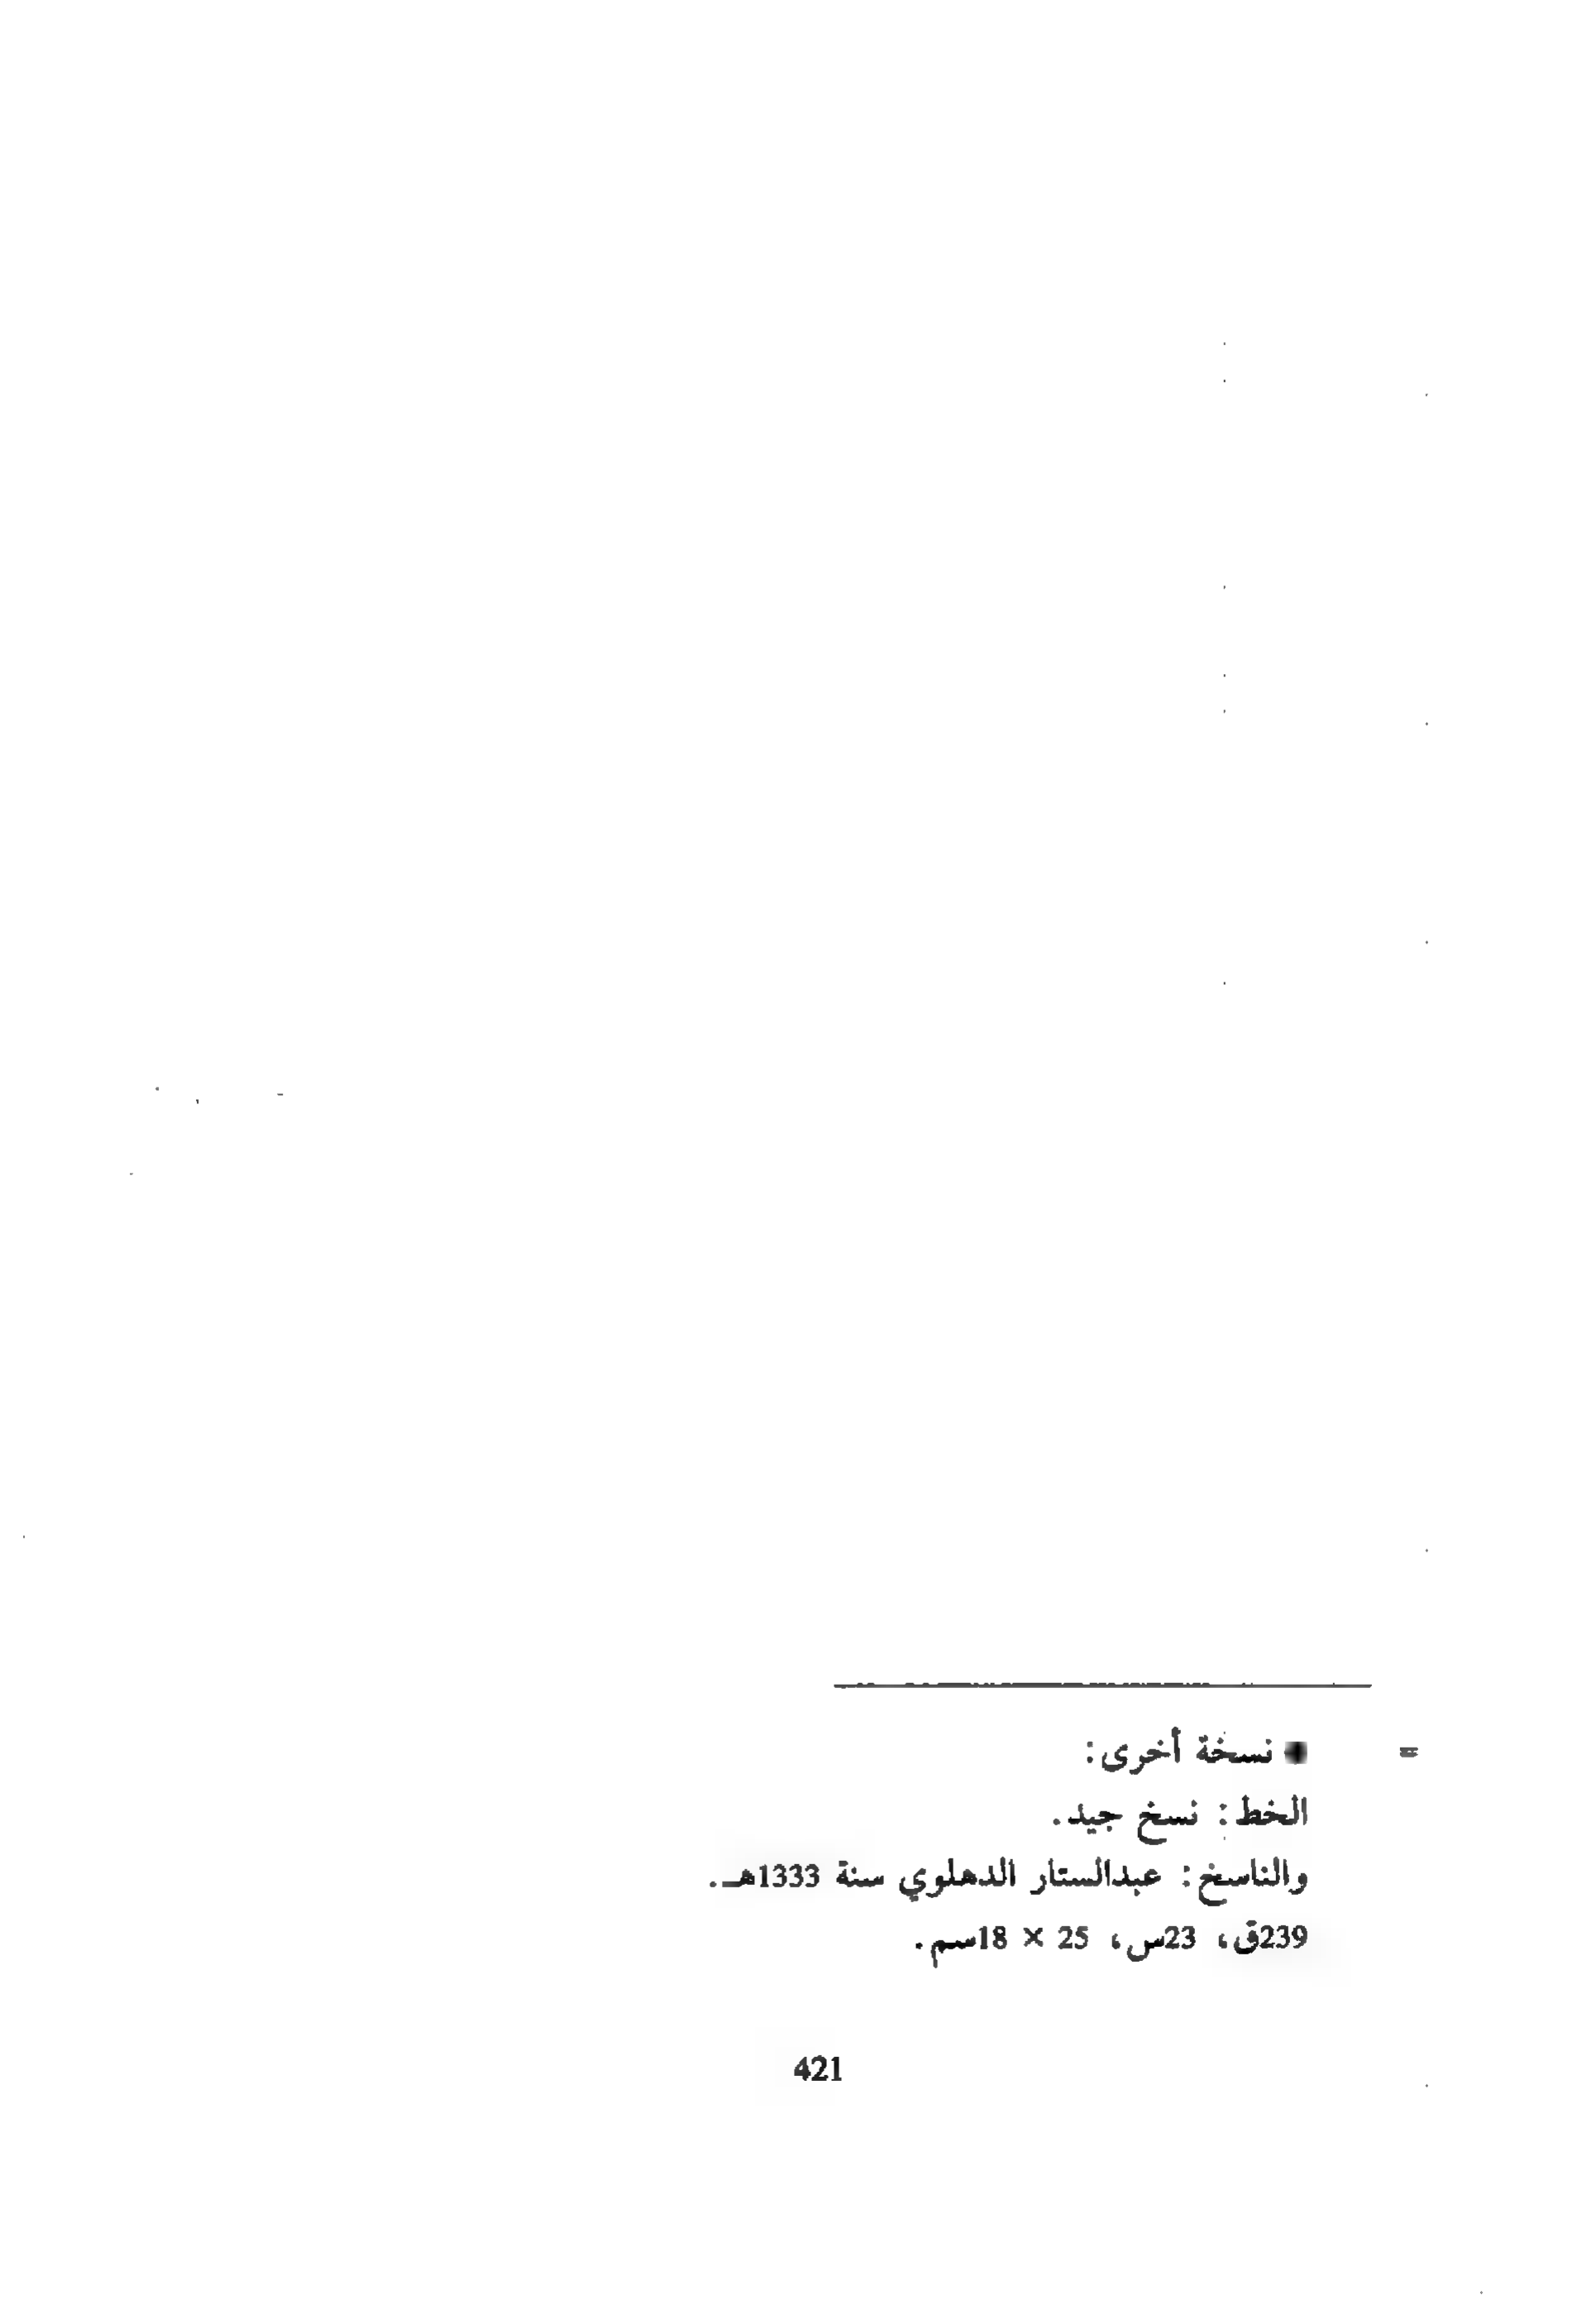 = ■ نسخة أخرى:
الخط: نسخ جيد.
والناسخ: عبدالستار الدهلوي سنة 1333هـ.
239ق، 23س، 25 × 18سم.
421